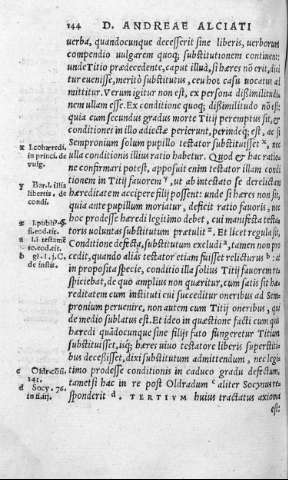 144 D. ANDREAE ALCIATI
uerba, quandocunque decesserit sine liberis, uerborum
compendio uulgarem quoq; substitutionem continent:
unde Titio praedecedente, caput illud, si haeres nō erit, dici
tur euenisse, meritò substitutus, ceu hoc casu uocatus ad
mittitur. Verum igitur non est, ex persona dißimilitudi
nem ullam esse. Ex conditione quoq; dißimilitudo nō est:
quia cum secundus gradus morte Titij peremptus sit, &
conditiones in illo adiectae perierunt, perinde q; est, ac si
Sempronium solum pupillo testator substituisset x, nec
ulla conditionis illius ratio habetur. Quod & hac ratio
ne confirmari potest, apposuit enim testator illam condi
tionem in Titij fauorem y, ut ab intestato se derelictam
haereditatem accipere posset: unde si is haeres non sit,
quia ante pupillum moriatur, deficit ratio fauoris, nec
hoc prodesse haeredi legitimo debet, cui manifesta testa
toris uoluntas substitutum praetulit z. Et licet regula sit,
Conditione defecta, substitutum excludi a, tamen non pro
cedit, quando alias testator etiam fuisset relicturus b: at
in proposita specie, conditio illa solius Titij fauorem re
spiciebat, de quo amplius non quaeritur, cum satis sit hae
reditatem cum instituti cui succeditur oneribus ad Sem-
pronium peruenire, non autem cum Titij oneribus, qui
de medio sublatus est. Et ideo in quaestione facti cum qui
haeredi quādocunque sine filijs fato fungeretur Titium
substituisset, isq; haeres uiuo testatore liberis superstiti-
bus deceßisset, dixi substitutum admittendum, nec legi-
timo prodesse conditionis in caduco gradu defectum,
tametsi hac in re post Oldradum c aliter Socynus re-
sponderit d. TERTIVM huius tractatus axioma
est:
x l. cohaeredi.
in princi. de
uulg.
y Bar. l. illis
libertis. de
condi.
ff. eod. tit.
a l. i. testamē
to. eod. tit.
b gl. l. j. C.
de instit.
c Oldr. cōsi.
d Socy. 76.